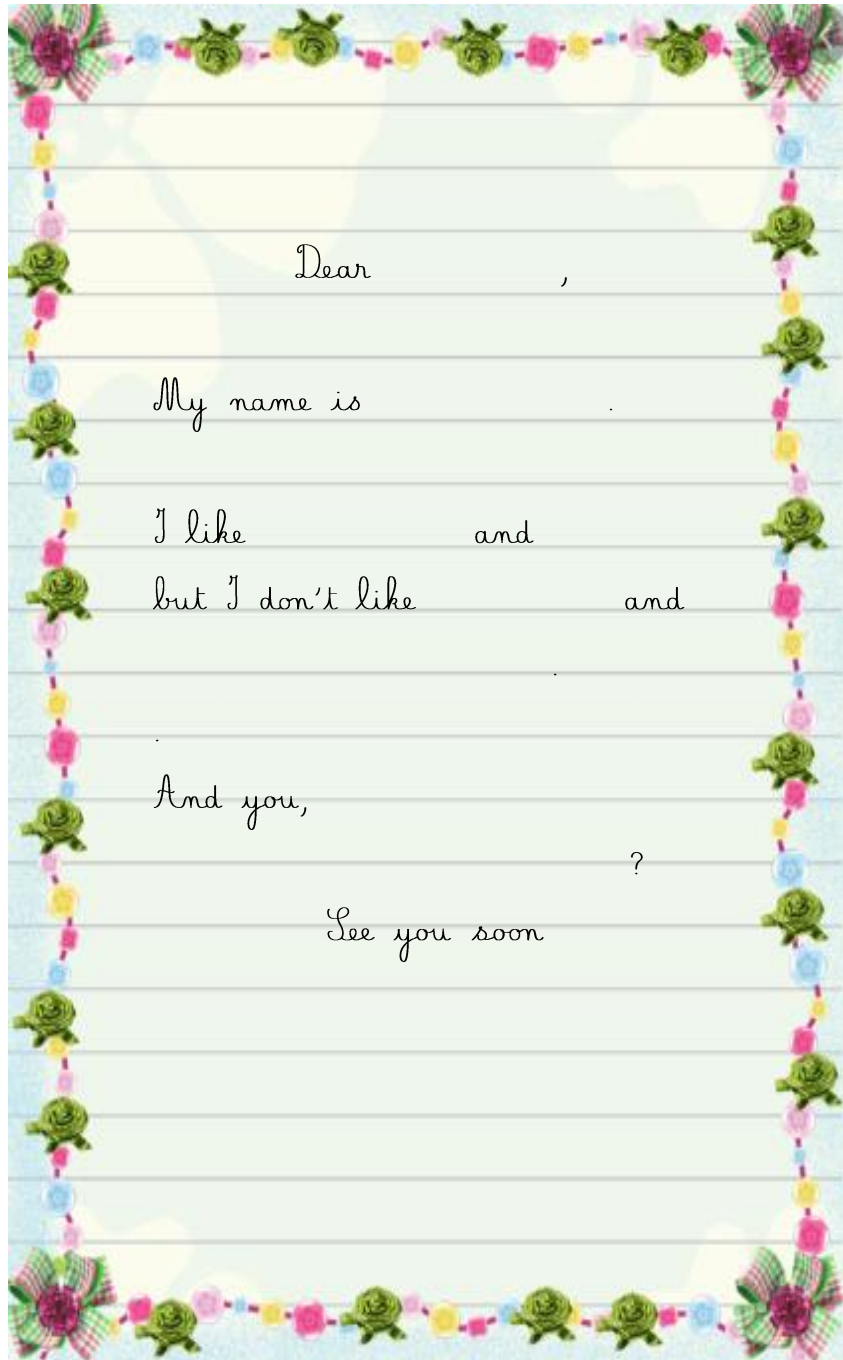 Dear ,
My name is .
I like and
but I don't like and
.
.
And you,
?
See you soon